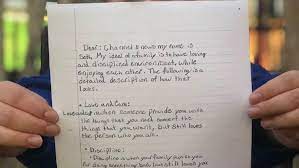 Dear: Channel 5 news my name is
Seth, My ideal of family is to have loving
and disciplined environment, while
enjoying each other. The following is a
detailed description of how that
looks.
• Love and Care:
when someone provide you with
the things that you need not the
things that you want, but still loves
the person who you are.
• Discipline:
Discipline is when your family